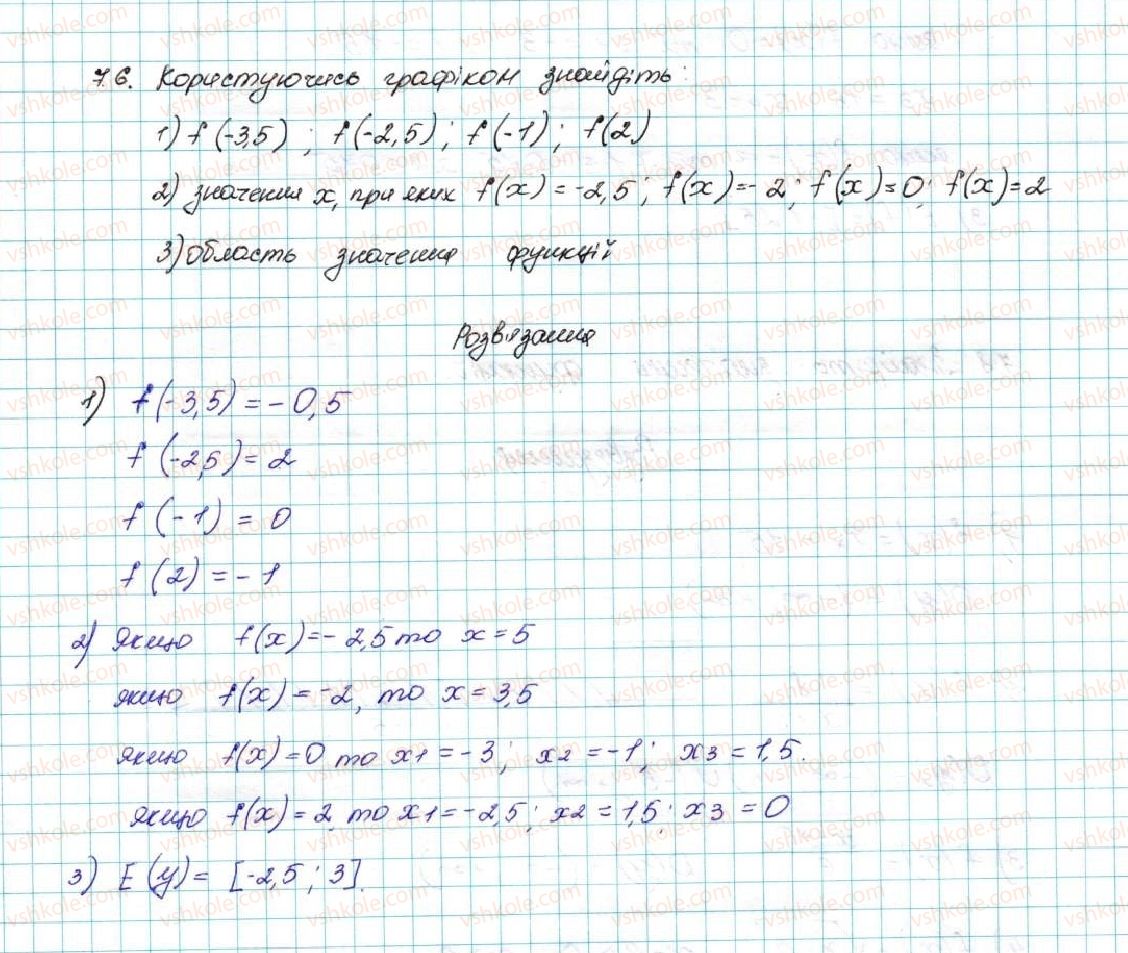 7.6. Користуючись графіком знайдіть:
1) f(-3,5) ; f(-2,5) ; f(-1) ; f(2)
2) значення x, при яких f(x) = -2,5 ; f(x) = -2 ; f(x) = 0 ; f(x) = 2
3) Область значення функцій
Розвязання
1) f(-3,5) = -0,5
f(-2,5) = 2
f(-1) = 0
f(2) = -1
2) Якщо f(x) = -2,5 то x = 5
якщо f(x) = -2, то x = 3,5
якщо f(x) = 0 то x1 = -3 ; x2 = -1 ; x3 = 1,5.
якщо f(x) = 2 то x1 = -2,5 ; x2 = 1,5 ; x3 = 0
3) E(y) = [-2,5 ; 3].
vshkole.com